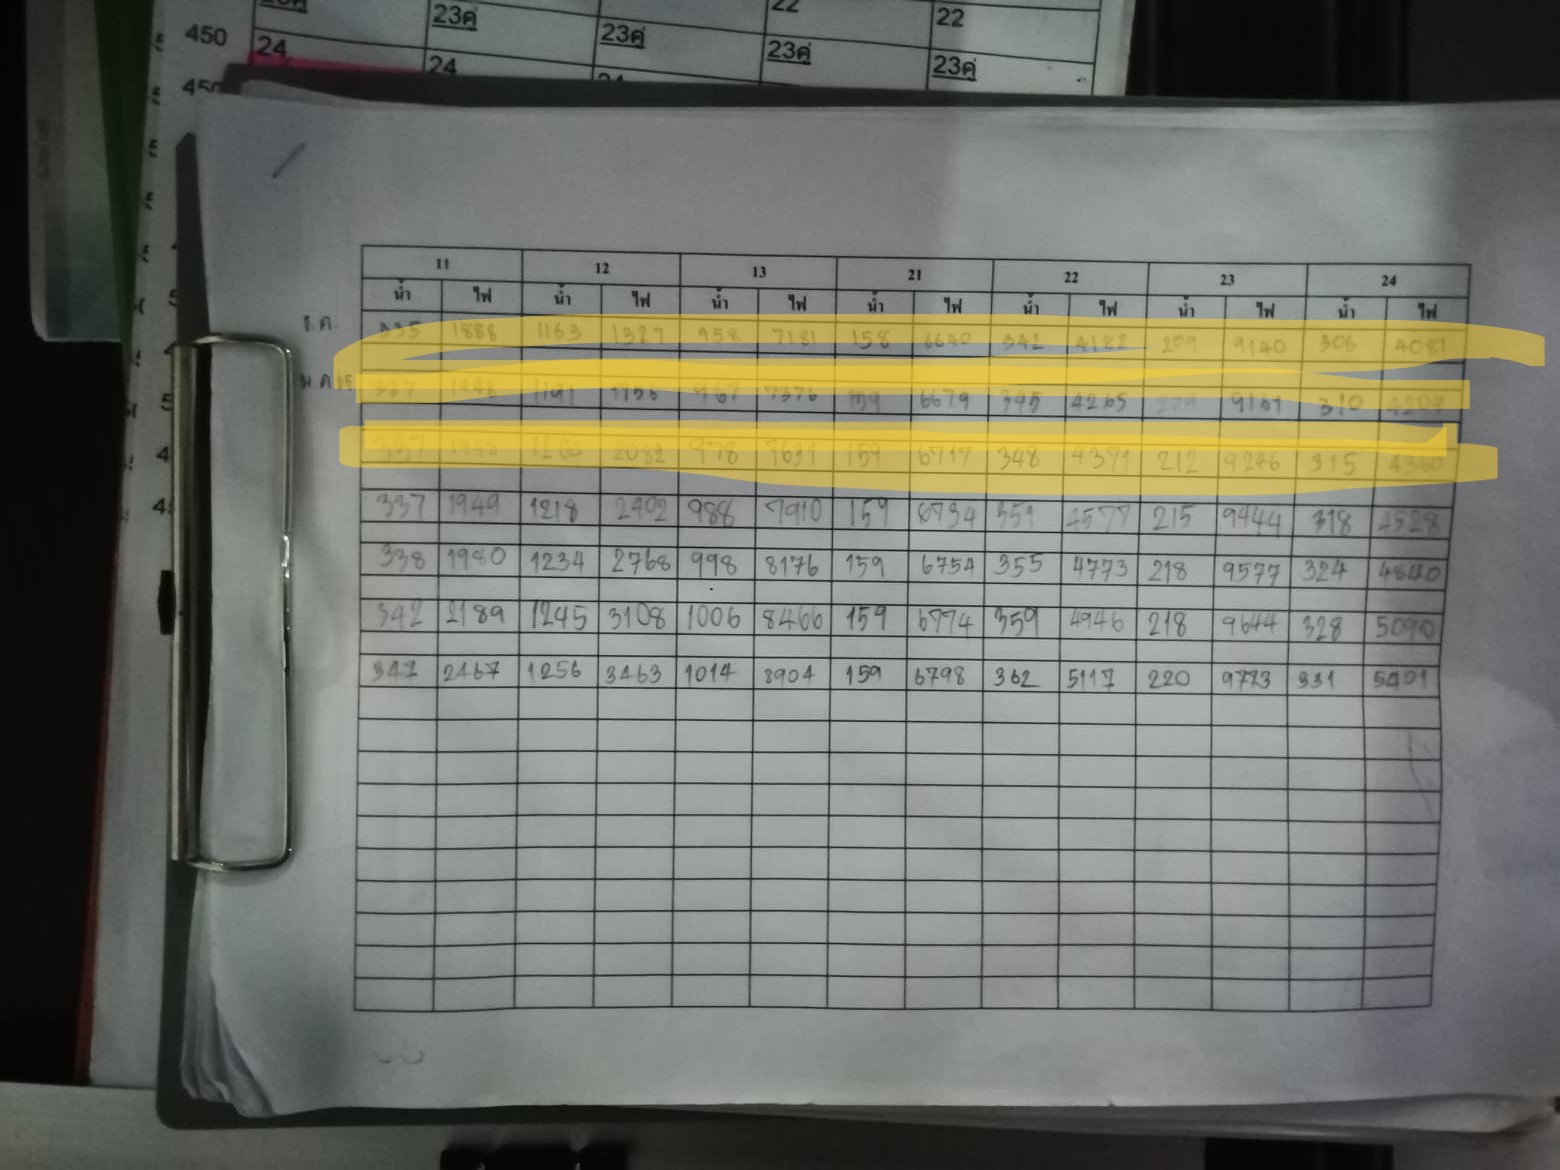 22 22
450 23คู่ 23คู่ 23คู่ 23คู่
24 24
11 12 13 21 22 23 24
น้ำ ไฟ น้ำ ไฟ น้ำ ไฟ น้ำ ไฟ น้ำ ไฟ น้ำ ไฟ น้ำ ไฟ
ธ.ค. 335 1888 1163 1327 958 7181 158 6640 342 4182 209 9140 306 4081
ม.ค. 337 1191 967 7376 159 6679 345 4265 310
337 1202 2082 978 7631 159 6717 348 4371 212 9246 315 4360
337 1949 1218 2402 988 7910 159 6734 351 4577 215 9444 318 4528
338 1980 1234 2768 998 8176 159 6754 355 4773 218 9577 324 4840
342 2189 1245 3108 1006 8466 159 6774 359 4946 218 9644 328 5090
347 2467 1256 3463 1014 8904 159 6798 362 5117 220 9773 331 5401